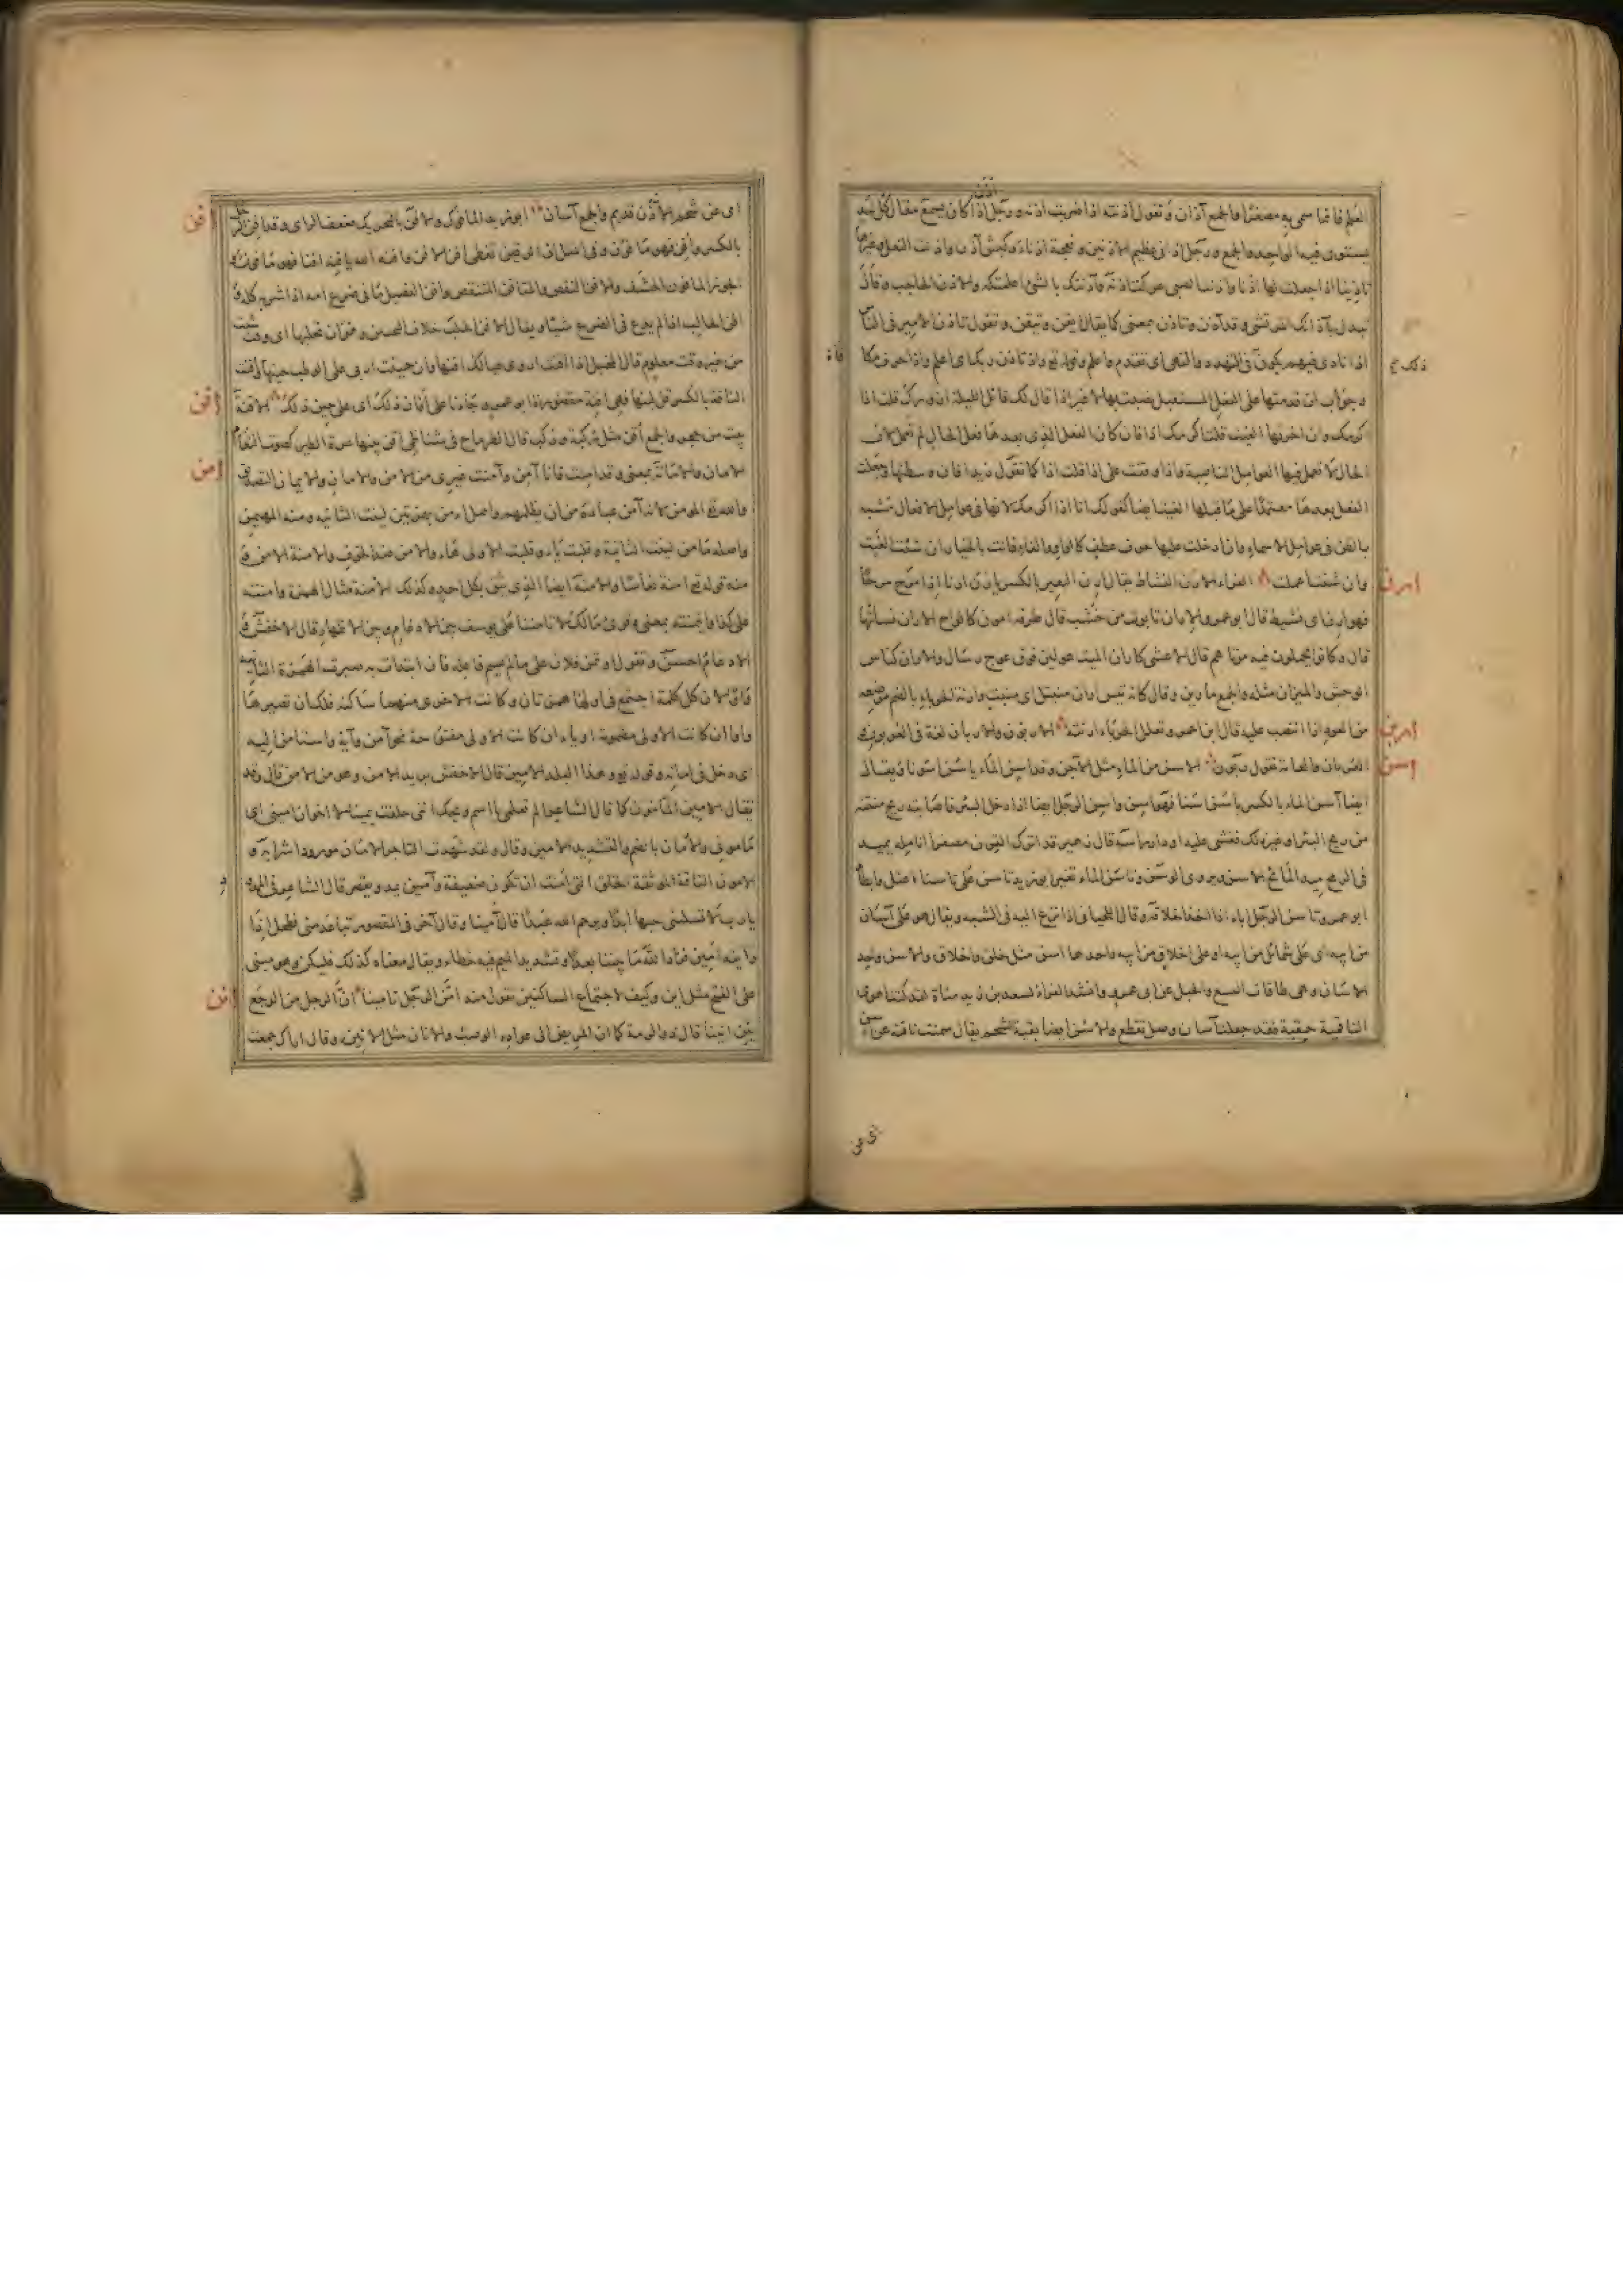 العلم فانما سمى به مصغرا والجمع آذان وتقول اذنته اذا ضربت اذنه ورجل اذن اذا كان يسمع مقال كل احد
يستوى فيه الواحد والجمع ورجل اذانى عظيم الاذنين ونعجة اذناء وكبش آذن واذنت النعل وغيرها
تاذينا اذا جعلت لها اذنا واذنت الصبى عركت اذنه وآذنتك بالشئ اعلمتكه والاذن الحاجب وقال
تبدل بآذنك المرتضى وقد آذن وتاذن بمعنى كما يقال ايقن وتيقن وتقول تاذن الامير فى الناس
اذا نادى فيهم يكون فى التهدد والنهى اى تقدم واعلم وقوله تع واذ تاذن ربك اى اعلم واذا حرف مكافاة
وجواب ان قدمتها على الفعل المستقبل نصبت بها لا غير اذا قال لك قائل الليلة ازورك قلت اذا
اكرمك وان اخرتها الغيت قلت اكرمك اذا فان كان الفعل الذى بعدها فعل الحال لم تعمل لان
الحال لا تعمل فيها العوامل الناصبة واذا وقفت على اذا قلت اذا كما تقول زيدا فان وسطتها وجعلت
الفعل بعدها معتمدا على ما قبلها الغيت ايضا كقولك انا اذا اكرمك لانها فى عوامل الافعال تشبه
بالظن فى عوامل الاسماء وان ادخلت عليها حرف عطف كالواو والفاء فانت بالخيار ان شئت الغيت
وان شئت اعملت الفراء الارن النشاط يقال ارن البعير بالكسر يارن ارنا اذا مرح مرحا
فهو ارن اى نشيط قال ابو عمرو والاران تابوت من خشب قال طرفة امون كالواح الاران نساتها
قال وكانوا يحملون فيه موتاهم قال الاعشى كاران الميت عولين فوق عوج رسال والاران كناس
الوحش والميزان مثله والجمع مارين وقال كانه تيس اران منبتل اى منبت وارنة الحرباء بالضم موضعه
من العود اذا انتصب عليه قال ابن احمر وتعلل الحرباء ارنته الاربون والاربان لغة فى العربون
العربان والعامة تقول ربون الاسن من الماء مثل الآجن وقد اسن الماء ياسن اسونا ويقال
ايضا آسن الماء بالكسر ياسن اسنا فهو اسن واسن الرجل ايضا اذا دخل البئر فاصابته ريح منتنة
من ريح البئر او غير ذلك فغشى عليه او دار راسه قال زهير قد اترك القرن مصفرا انامله يميد
فى الرمح ميد المائح الاسن ويروى الوسن وتاسن الماء تغير ابو زيد تاسن على تاسنا اعتل وابطأ
ابو عمرو تاسن الرجل اباه اذا اخذ اخلاقه وقال اللحيانى اذا نزع اليه فى الشبه ويقال هو على آسان
من ابيه اى على شمائل من ابيه او على اخلاق من ابيه واحدها اسن مثل خلق واخلاق والاسن واحد
الاسان وهى طاقات النسع والحبل عن ابى عمرو وانشد الفراء لسعد بن زيد مناة لقد كنت اهوى
الناقمية حقبة فقد جعلت آسان وصل تقطع والاسن ايضا بقية الشحم يقال سمنت ناقته عن اسن
ارن
اربن
اسن
اى عن
اى عن شحم الاذن قديم والجمع آسان ابو زيد المافوك والافن بالتحريك ضعف الراى وقد افن الرجل
بالكسر وافن فهو مافون وفى المثل ان الرقين تغطى افن الافن وافنه الله يافنه افنا فهو مافون
الجوز المافون الحشف والافن النقص والمتافن المتنقص وافن الفصيل ما فى ضرع امه اذا شربه كله
افن الحالب اذا لم يدع فى الضرع شيئا ويقال الافن الحلب خلاف التحيين وهو ان تحلبها اى وقت شئت
من غير وقت معلوم قال المخبل اذا افنت اروى عيالك افنها وان حينت اربى على الوطب حينها وافنت
الناقة بالكسر قل لبنها فهى افنة مقصورة ابو عمرو جاءنا على افان ذلك اى على حين ذلك الاقنة
بيت من حجر والجمع اقن مثل ركبة وركب قال الطرماح فى شناظى اقن بينها عرة الطير كصوم النعام
الامان والامانة بمعنى وقد امنت فانا آمن وآمنت غيرى من الامن والامان والايمان التصديق
والله تع المؤمن لانه آمن عباده من ان يظلمهم واصل اءمن بهمزتين لينت الثانية ومنه المهيمن
واصله مأامن لينت الثانية وقلبت ياء وقلبت الاولى هاء والامن ضد الخوف والامنة الامن و
منه قوله تع امنة نعاسا والامنة ايضا الذى يثق بكل احد وكذلك الامنة مثال الهمزة وامنته
على كذا وائتمنته بمعنى وقرئ مالك لا تامننا على يوسف بين الادغام وبين الاظهار قال الاخفش و
الادغام احسن وتقول اؤتمن فلان على ما لم يسم فاعله فان ابتدات به صيرت الهمزة الثانية
واوا لان كل كلمة اجتمع فى اولها همزتان وكانت الاخرى منهما ساكنة فلك ان تصيرها
واوا ان كانت الاولى مضمومة او ياء ان كانت الاولى مفتوحة نحو آمن وآية واستامن اليه
اى دخل فى امانه وقوله تع وهذا البلد الامين قال الاخفش يريد الآمن وهو من الامن قال وقد
يقال الامين المامون كما قال الشاعر الم تعلمى يا اسم ويحك اننى حلفت يمينا لا اخون امينى اى
مامونى والامان بالضم والتشديد الامين وقال ولقد شهدت التاجر الامان مورودا شرابه و
الامون الناقة الموثقة الخلق التى امنت ان تكون ضعيفة وآمين يمد ويقصر قال الشاعر فى المد
يا رب لا تسلبنى حبها ابدا ويرحم الله عبدا قال آمينا وقال آخر فى المقصور تباعد منى فطحل اذ
رايته امين فزاد الله ما بيننا بعدا وتشديد الميم فيه خطاء ويقال معناه كذلك فليكن وهو مبنى
على الفتح مثل اين وكيف لاجتماع الساكنين تقول منه امن الرجل تامينا ان الرجل من الوجع
يئن انينا قال ذو الرمة كما ان المريض الى عواده الوصب والانان مثل الانين وقال اراك جمعت
افن
اقن
امن
انن